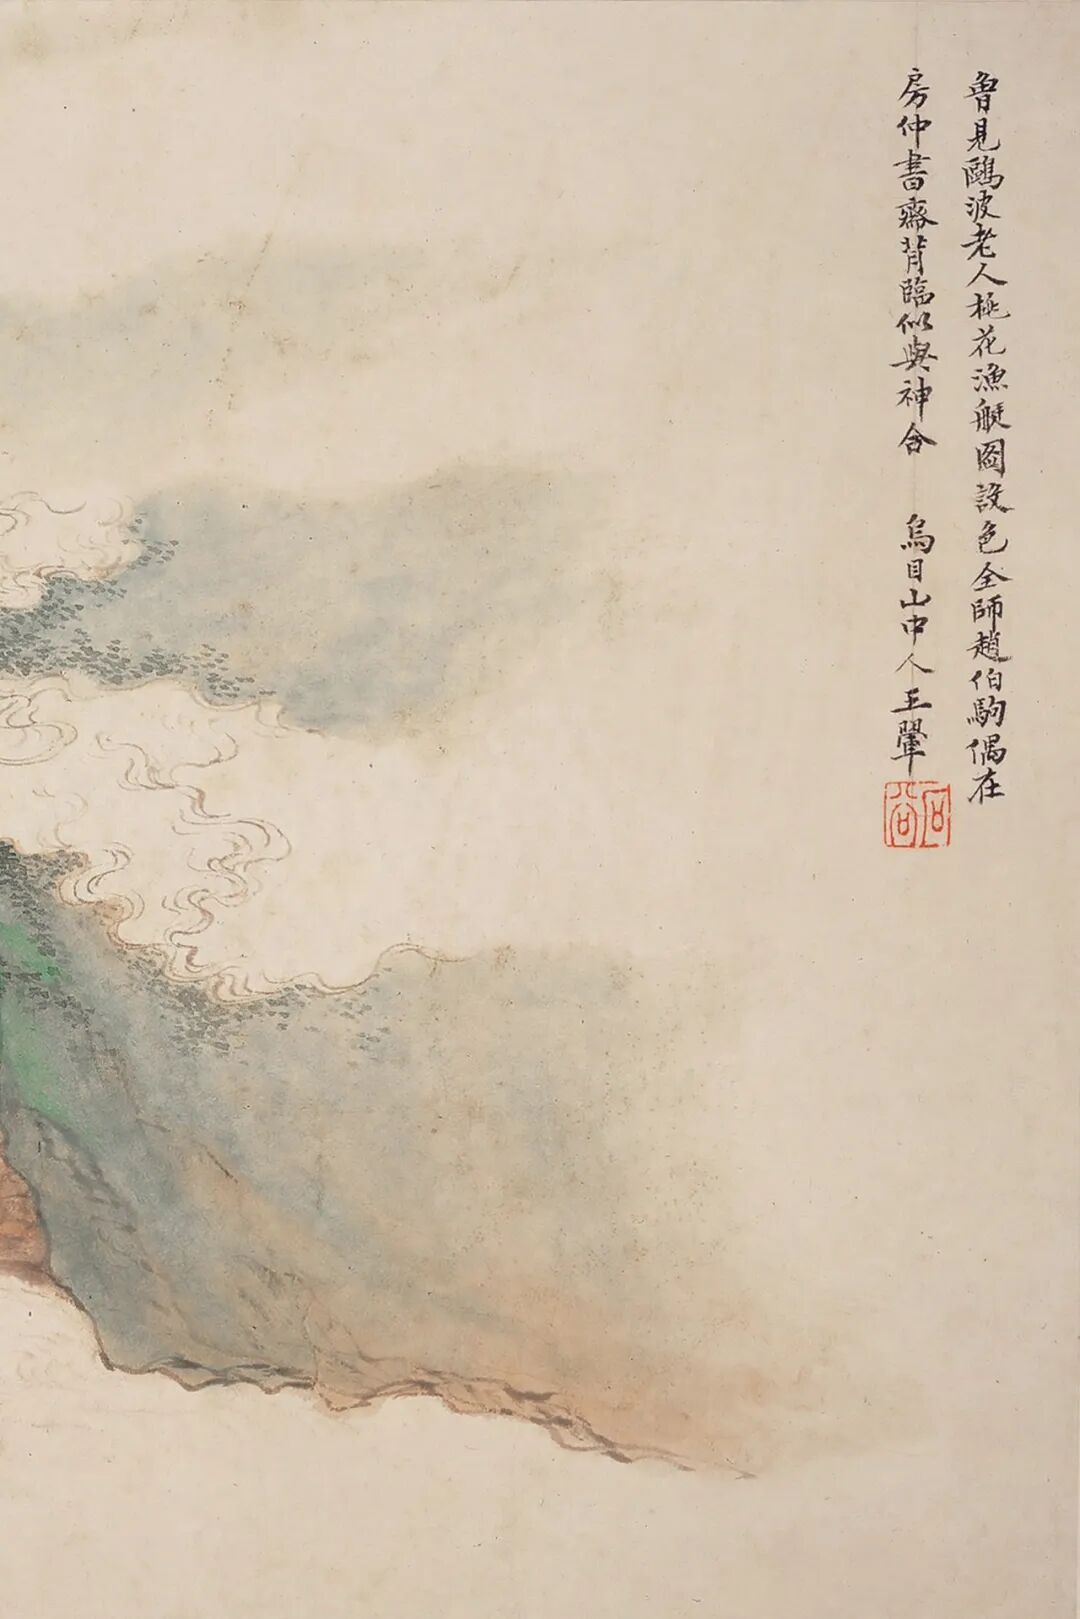 曾見鷗波老人桃花漁艇圖設色全師趙伯駒偶在
房仲書齋背臨似與神合　烏目山中人王翬
石谷